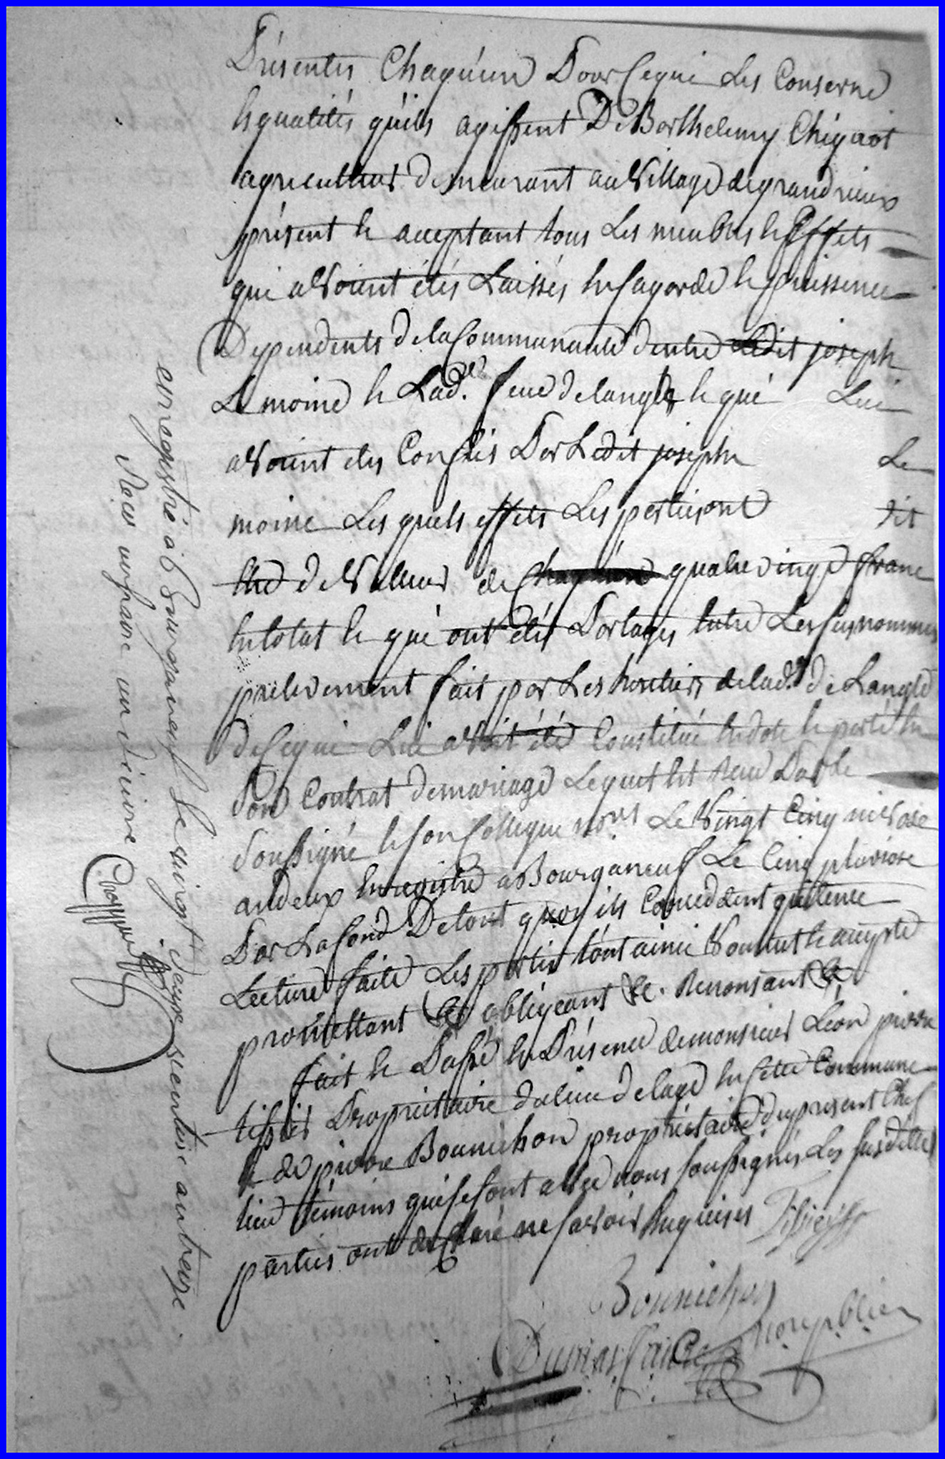 Présentes Chaqu'un Pour Ce qui Les Conserne
les qualités qu'ils agissent De Barthelemy Chignot
agriculteur demeurant au Village de grandrieux
présent et aceptant tous Les meubles et Effets
qui avoint étés Laissés en la garde et jouissence
Dependents de la Communauté d'entre Ledit joseph
Le moine et Lad.te feue delangle et qui Lui
avoint étés Confiés Par Ledit joseph Le
moine Les quels effets Les parties ont dit
de Valleur de quatre vingt franc
en total et qui ont étés Partages entre Les susnommes
prelevement fait par Les heritiers de lad.te de Langle
de Ce qui Lui avoit été Constitué en dote et porté en
Son Contrat de mariage Lequel est Reçu Par le
Soussigné et son Collegue no.res Le Vingt Cinq nivose
an deux Enregistré a Bourganeuf Le Cinq pluviose
Par Lafond De tout quoy ils Concedent quitence
Lecture faite Les parties l'ont ainsi Voullut et acepté
promettant &c obligeant &c. Renonsant &c
fait et Passé en Présence de monsieur Léon pierre
tissier Propriétaire du lieu de lage en cette Commune
et de pierre Bounichon propriétaire du present Chef
lieu témoins qui se sont avec nous soussignés Les susdittes
parties ont declaré ne savoir En quérir Tissier
Bounichon
Dumasfaure no.re public
enregistré à Bourganeuf le vingt deux ventose an treize
Recu un franc un decime